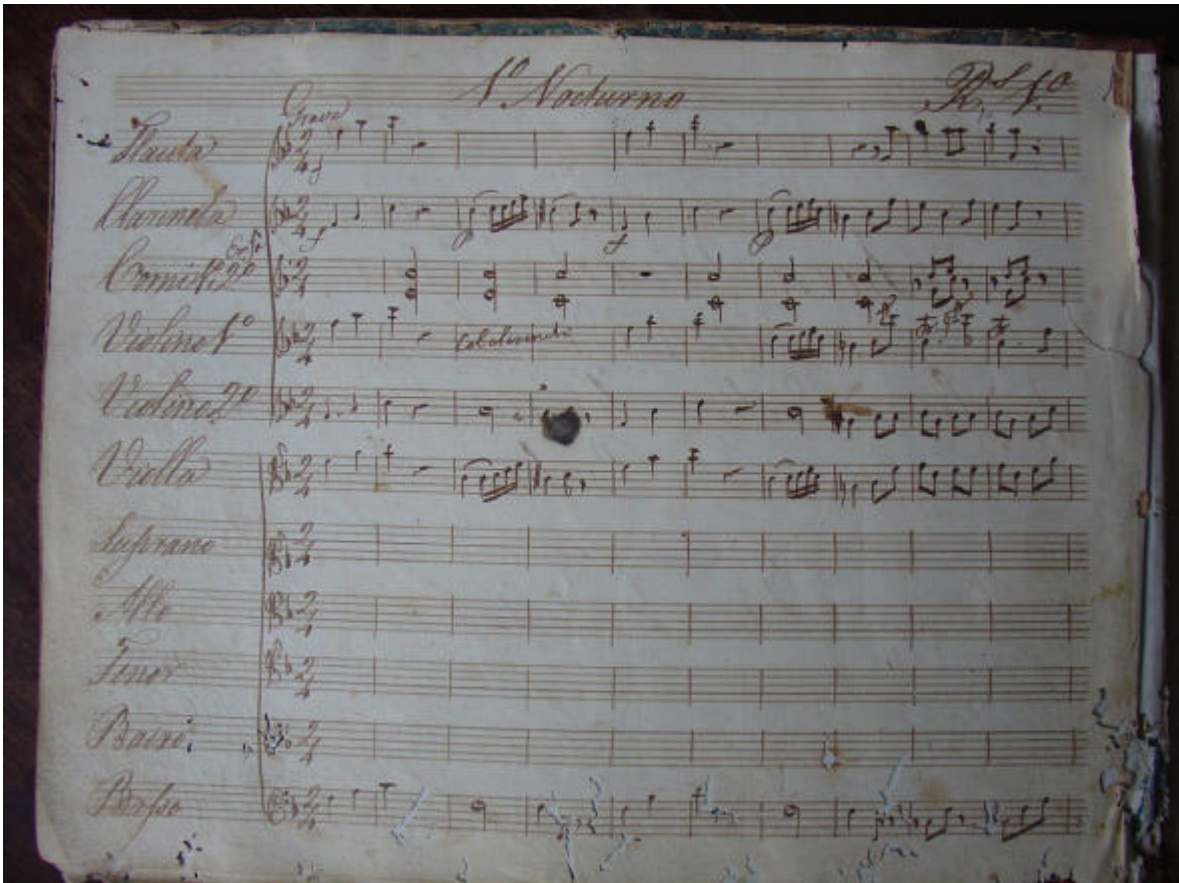 1º Nocturno Rº 1º
Grave
Flauta
Clarineta
Corni 1º 2º
Violino 1º
Col clarineta
Violino 2º
Violla
Suprano
Alto
Tenor
Baixo
Basso